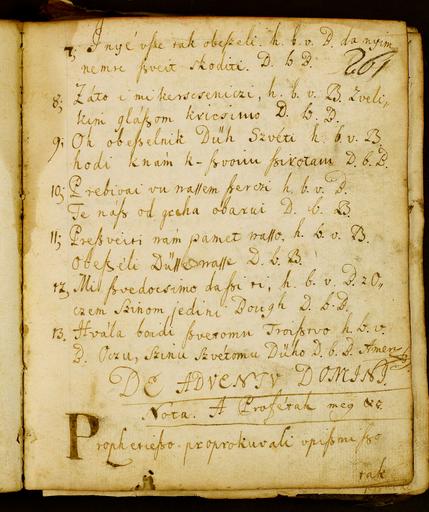 7. I nyé vsse tak obeſseli. h. b. v. D. da nyim
261
nemre sveit skoditi. D. b. D.
8; Záto i mi kerscseniczi, h. b. v. D. Zveli-
kim glaſsom kricsimo D. b. D.
9; Oh obeſselnik Düh Szvéti h. b. v. D.
hodi knám k-ſsvoim ſsirotam D. b. D.
10; Prebivai vu naſsem ſserczi h. b. v. D.
Te náſs od greha obarui D. b. D.
11; Preſsveiti nám pamet naſso. h. b. v. D.
Obeſséli Düſse naſse D. b. D.
12; Mi ſsvedocsimo da ſsi ti, h. b. v. D. z O-
czem Szinom jedini Bough D. b. D.
13. Hvála boidi ſsvetomu Troiſstvo h. b. v.
D. Oczu, Szinu Szvetomu Düho D. b. D. Amen
DE ADVENTV DOMINI.
Nota. A Profétak meg &c.
Propheticſso proprokuvali vpiſsmi ſso
tak